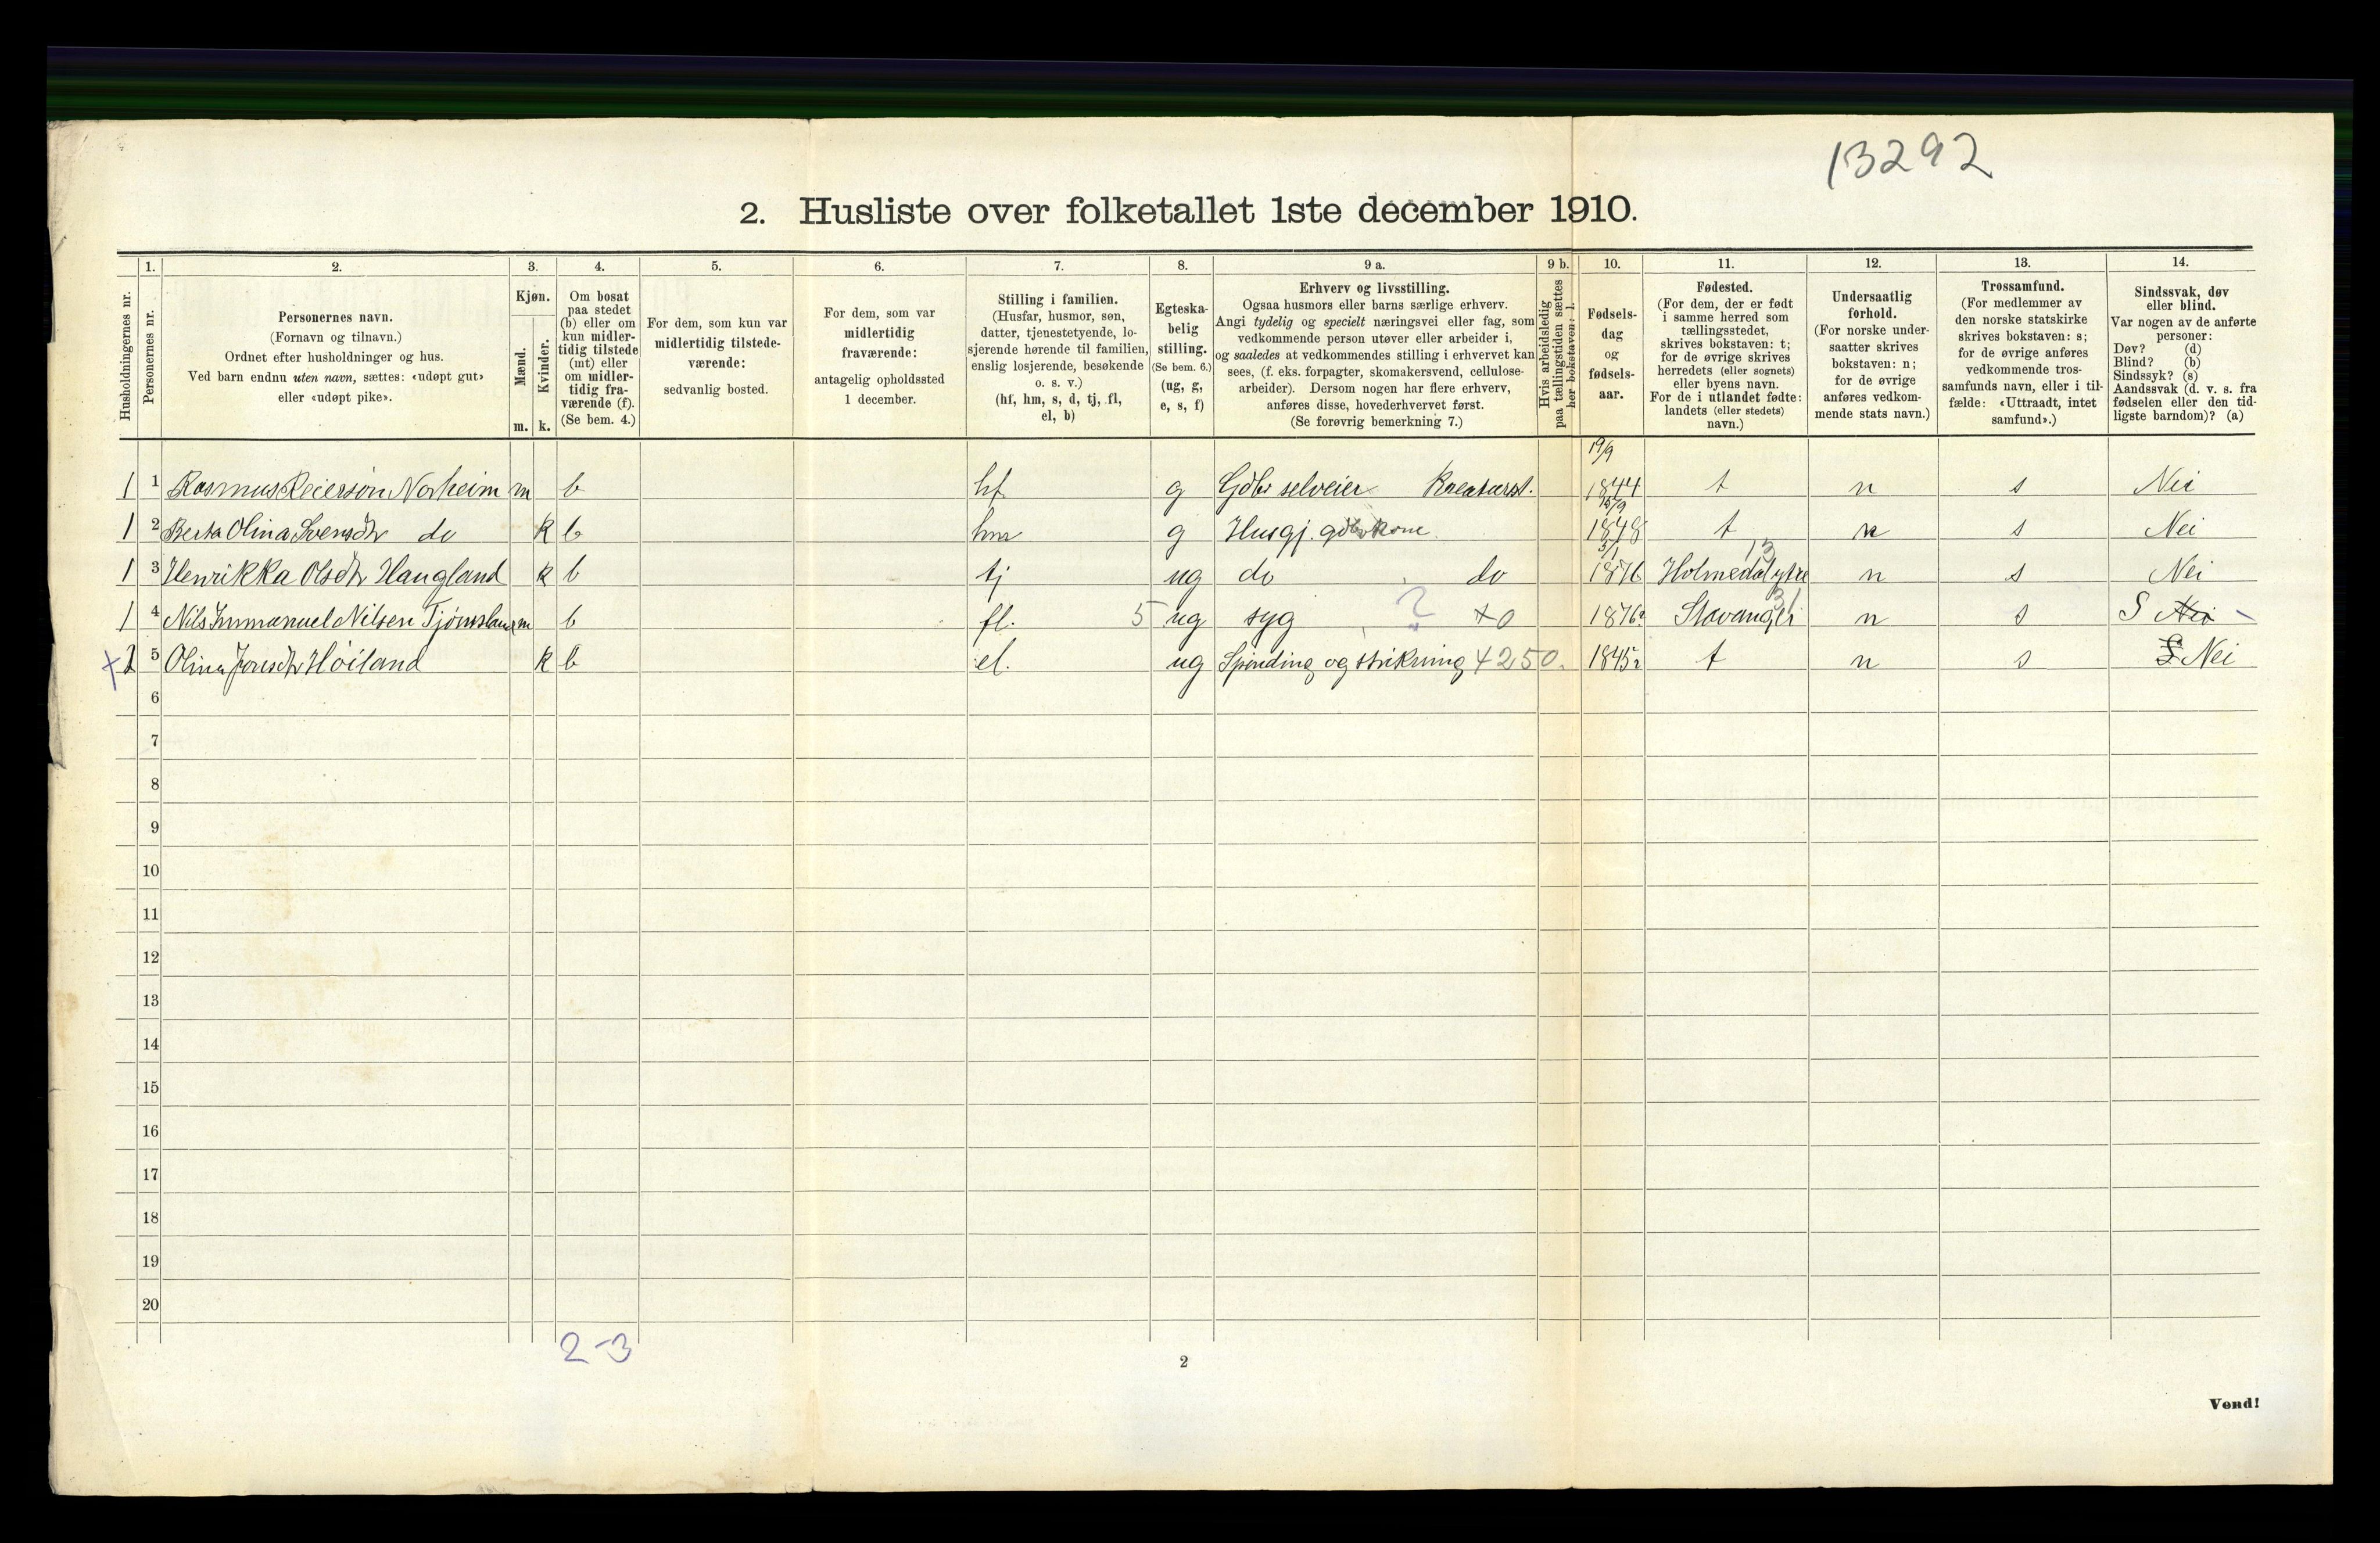 13292
2. Husliste over folketallet 1ste december 1910.
Husholdningernes nr.
1.
Personernes nr.
2.
Personernes navn.
(Fornavn og tilnavn.)
Ordnet efter husholdninger og hus.
Ved barn endnu uten navn, sættes: «udøpt gut»
eller «udøpt pike».
3.
Kjøn.
Mænd.
Kvinder.
m. k.
4.
Om bosat
paa stedet
(b) eller om
kun midler-
tidig tilstede
(mt) eller
om midler-
tidig fra-
værende (f).
(Se bem. 4.)
5.
For dem, som kun var
midlertidig tilstede-
værende:
sedvanlig bosted.
6.
For dem, som var
midlertidig
fraværende:
antagelig opholdssted
1 december.
7.
Stilling i familien.
(Husfar, husmor, søn,
datter, tjenestetyende, lo-
sjerende hørende til familien,
enslig losjerende, besøkende
o. s. v.)
(hf, hm, s, d, tj, fl,
el, b)
8.
Egteska-
belig
stilling.
(Se bem. 6.)
(ug, g,
e, s, f)
9 a.
Erhverv og livsstilling.
Ogsaa husmors eller barns særlige erhverv.
Angi tydelig og specielt næringsvei eller fag, som
vedkommende person utøver eller arbeider i,
og saaledes at vedkommendes stilling i erhvervet kan
sees, (f. eks. forpagter, skomakersvend, cellulose-
arbeider). Dersom nogen har flere erhverv,
anføres disse, hovederhvervet først.
(Se forøvrig bemerkning 7.)
9 b.
Hvis arbeidsledig
paa tællingstiden sættes
her bokstaven: l.
10.
Fødsels-
dag
og
fødsels-
aar.
11.
Fødested.
(For dem, der er født
i samme herred som
tællingsstedet,
skrives bokstaven: t;
for de øvrige skrives
herredets (eller sognets)
eller byens navn.
For de i utlandet fødte:
landets (eller stedets)
navn.)
12.
Undersaatlig
forhold.
(For norske under-
saatter skrives
bokstaven: n;
for de øvrige
anføres vedkom-
mende stats navn.)
13.
Trossamfund.
(For medlemmer av
den norske statskirke
skrives bokstaven: s;
for de øvrige anføres
vedkommende tros-
samfunds navn, eller i til-
fælde: «Uttraadt, intet
samfund».)
14.
Sindssvak, døv
eller blind.
Var nogen av de anførte
personer:
Døv? (d)
Blind? (b)
Sindssyk? (s)
Aandssvak (d. v. s. fra
fødselen eller den tid-
ligste barndom)? (a)
1 1 Rasmus Reierson Norheim m b hf g Gdbr selveier Kreaturst. 19/9 1844 t n s Nei
1 2 Berta Olina Svensdtr do k b hm g Husgj. gdbrkone 1848 t n s Nei
1 3 Henrikka Olsdtr Haugland k b tj ug do do 5/1 1876 Holmedal ytre 13 n s Nei
1 4 Nils Immanuel Nilsen Tjømsland m b fl. 5 ug syg ? 1876 Stavanger 31 n s S Nei
2 5 Olina Jonsdtr Höiland k b el. ug Spinding og strikning 4250. 1845 t n s S Nei
6
7
8
9
10
11
12
13
14
15
16
17
18
19
20
2-3
2
Vend!